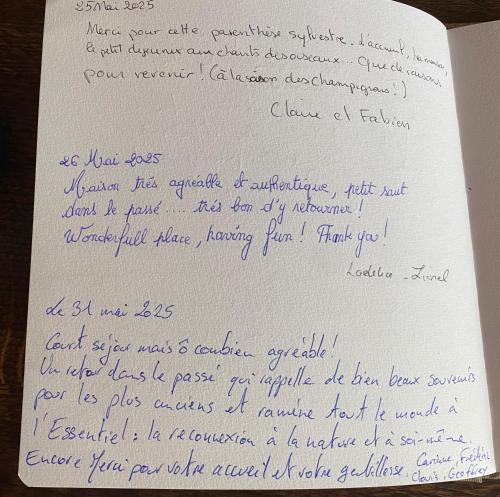 25 Mai 2025
Merci pour cette parenthèse sylvestre. L'accueil, la maison,
le petit dejeuner aux chants des oiseaux... Que de raisons
pour revenir! (à la saison des champignons!)
Claire et Fabien
26 Mai 2025
Maison très agréable et authentique, petit saut
dans le passé .... très bon d'y retourner!
Wonderfull place, having fun! Thank you!
Lionel
Le 31 mai 2025
Court séjour mais ô combien agréable!
Un retour dans le passé qui rappelle de bien beaux souvenirs
pour les plus anciens et ramène tout le monde à
l'Essentiel : la reconnexion à la nature et à soi-même.
Encore Merci pour votre accueil et votre gentillesse. Corinne, Frédéric
Clovis, Geoffrey